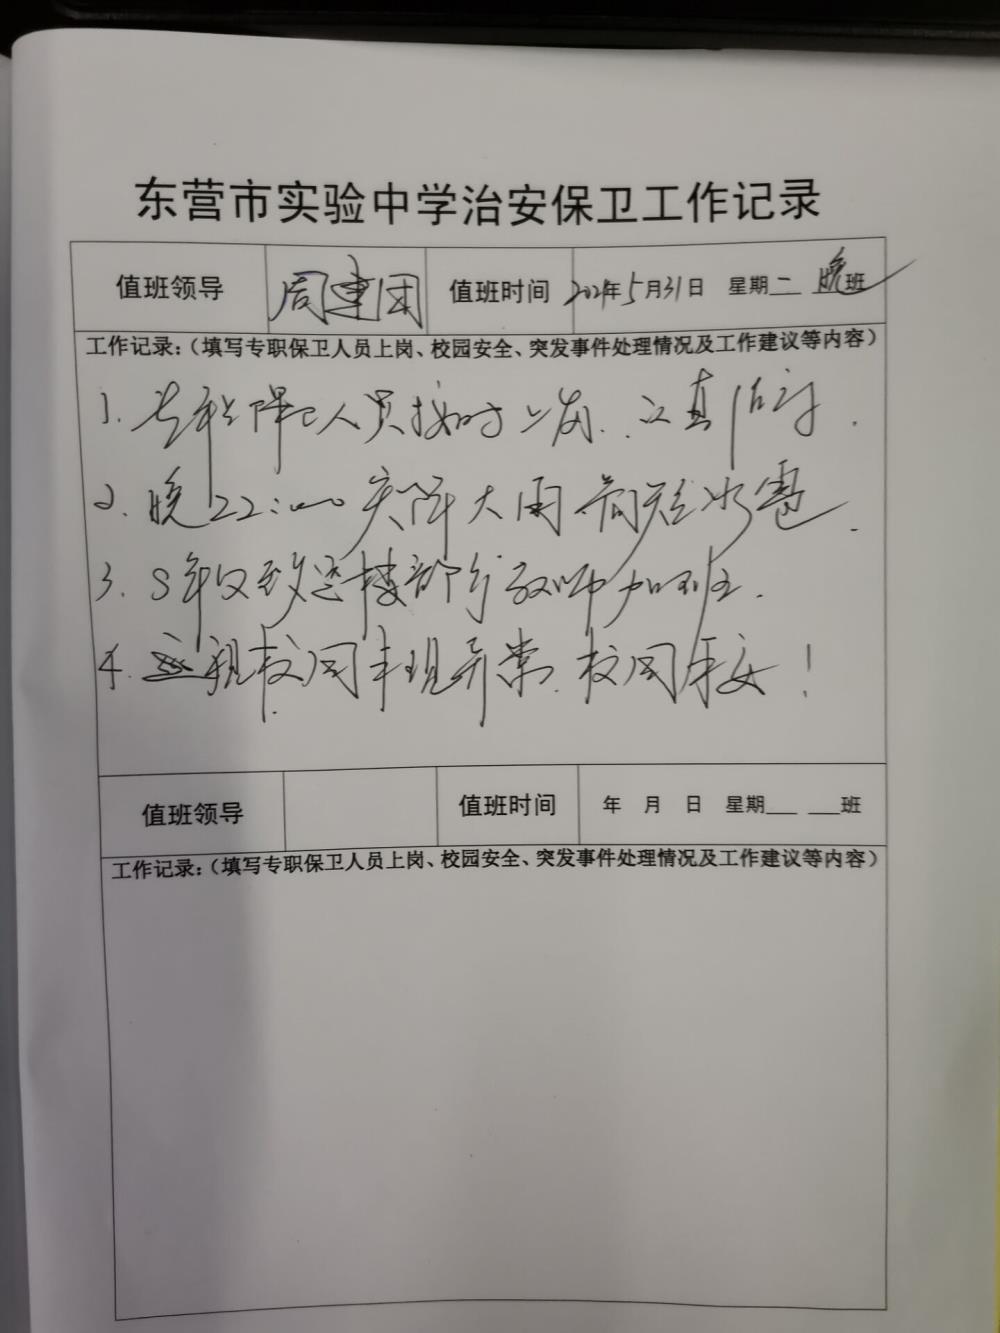 东营市实验中学治安保卫工作记录
值班领导 周建国 值班时间 2021年5月31日 星期二 晚班
工作记录：（填写专职保卫人员上岗、校园安全、突发事件处理情况及工作建议等内容）
1. 专职保卫人员按时上岗.认真值守.
2. 晚22:00突降大雨.有短冰雹.
3. 8年级致远楼部分教师加班.
4. 校园未现异常.校园平安！
值班领导 值班时间 年 月 日 星期___ ___班
工作记录：（填写专职保卫人员上岗、校园安全、突发事件处理情况及工作建议等内容）